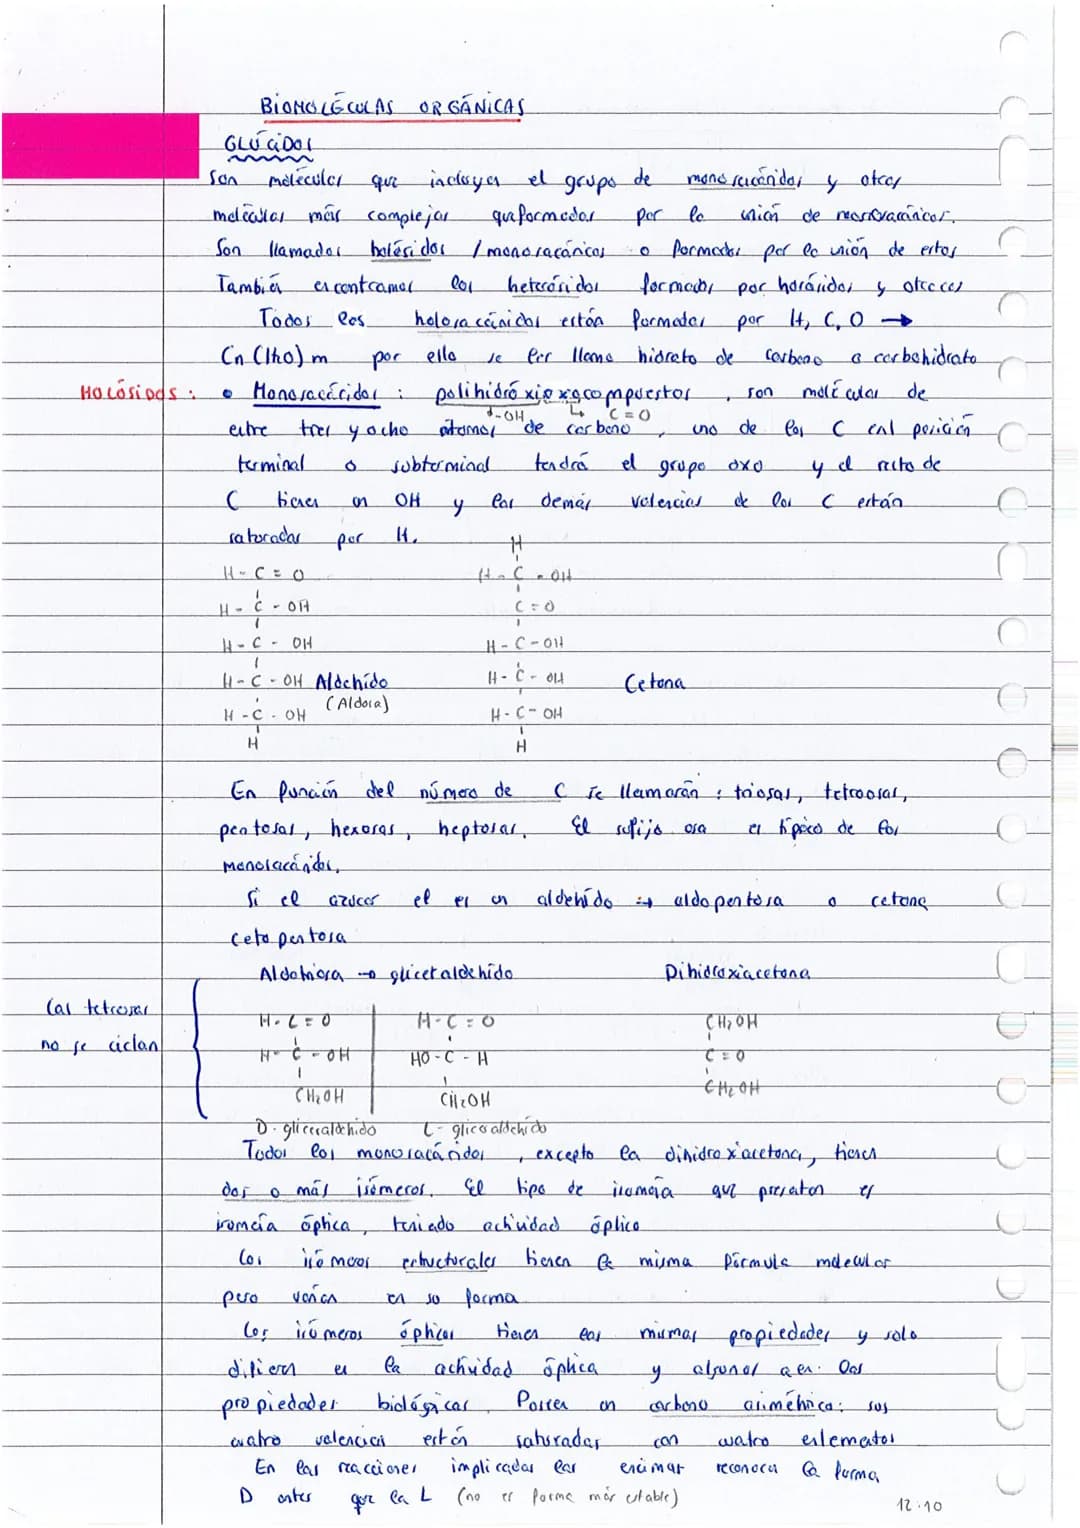 BIOMOLÉCULAS ORGÁNICAS
GLÚCIDOS
Son moléculas que incluyen el grupo de monosacáridos y otras
moléculas más complejas que formadas por la unión de
Son llamados holósidos / o formados por la unión de estos
También encontramos los heterósidos formados por holósidos y
Todos los están formados por H, C, O →
Cn (H2O) m por ello se les llama hidrato de carbono o carbohidrato
HOLÓSIDOS : • Monosacáridos : polihidroxioxocompuestos , son moléculas de
↓-OH ↳ C=O
entre tres y ocho átomos de carbono , uno de los C en posición
terminal o subterminal tendrá el grupo oxo y el resto de
C tienen un OH y las demás valencias de los C están
saturadas por H.
H
H - C = O H - C - OH
H - C - OH C = O
H - C - OH H - C - OH
H - C - OH Aldehído H - C - OH Cetona
(Aldosa)
H - C - OH H - C - OH
H H
En función del número de C se llamarán : triosas, tetrosas,
pentosas, hexosas, heptosas. El sufijo osa es típico de los
monosacáridos.
Si el azúcar el es un aldehído → aldopentosa o cetona
cetopentosa
Aldotriosa → gliceraldehído Dihidroxiacetona
Las tetrosas
no se ciclan
H - C = O H - C = O CH2OH
H - C - OH HO - C - H C = O
CH2OH CH2OH CH2OH
D - gliceraldehído L - gliceraldehído
Todos los monosacáridos , excepto la dihidroxiacetona, tienen
dos o más isómeros. El tipo de isomería que presentan es
isomería óptica, teniendo actividad óptica
Los isómeros estructurales tienen la misma fórmula molecular
pero varían en su forma
Los isómeros ópticos tienen las mismas propiedades y solo
difieren en la actividad óptica y algunas
propiedades biológicas. Poseen un carbono asimétrico: sus
cuatro valencias están saturadas con cuatro elementos
En las reacciones implicadas las enzimas reconocen la forma
D antes que la L (no es forma más estable)
12.10